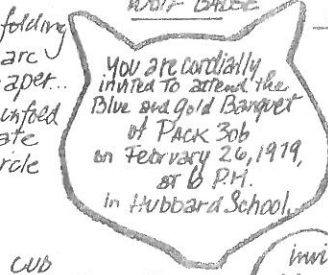 folding
arc
aper...
unfold
ate
rcle
WOLF BADGE
You are cordially
invited to attend the
Blue and gold Banquet
of PACK 306
on February 26, 1979,
at 6 P.M.
in Hubbard School.
CUB
invi